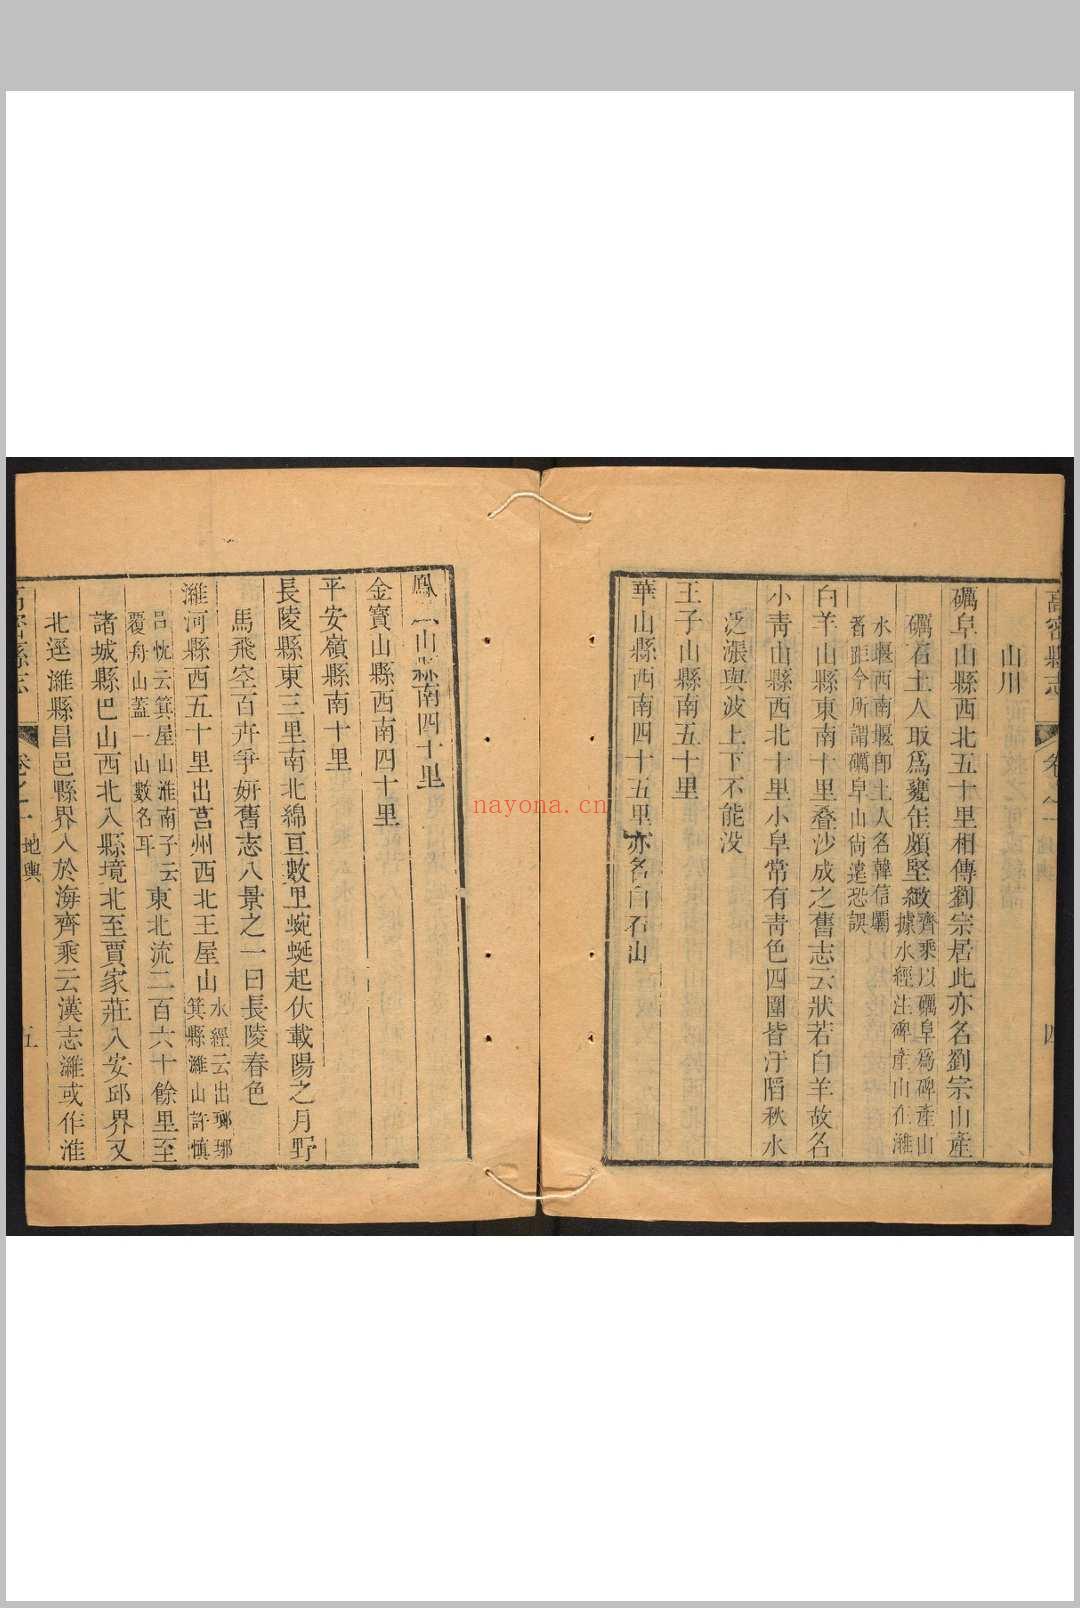 高密縣志 卷之一 地輿 四
山川
礪阜山縣西北五十里相傳劉宗居此亦名劉宗山產
礪石土人取爲甕缶頗堅緻齊乘以礪阜爲碑產山
據水經注碑產山在濰
水堰西南堰卽土人名韓信壩
者距今所謂礪阜山尙遠恐誤
白羊山縣東南十里叠沙成之舊志云狀若白羊故名
小靑山縣西北十里小阜常有靑色四圍皆汙䧟秋水
泛漲與波上下不能没
王子山縣南五十里
華山縣西南四十五里亦名白石山
鳳山縣南四十里
金寶山縣西南四十里
平安嶺縣南十里
長陵縣東三里南北綿亘數里蜿蜒起伏載陽之月野
馬飛空百卉爭妍舊志八景之一曰長陵春色
濰河縣西五十里出莒州西北王屋山水經云出瑯琊
箕縣濰山許慎
呂忱云箕屋山淮南子云
覆舟山蓋一山數名耳
東北流二百六十餘里至
諸城縣巴山西北入縣境北至賈家莊入安邱界又
北逕濰縣昌邑縣界入於海齊乘云漢志濰或作淮
高密縣志 卷之一 地輿 五
nayona.cn